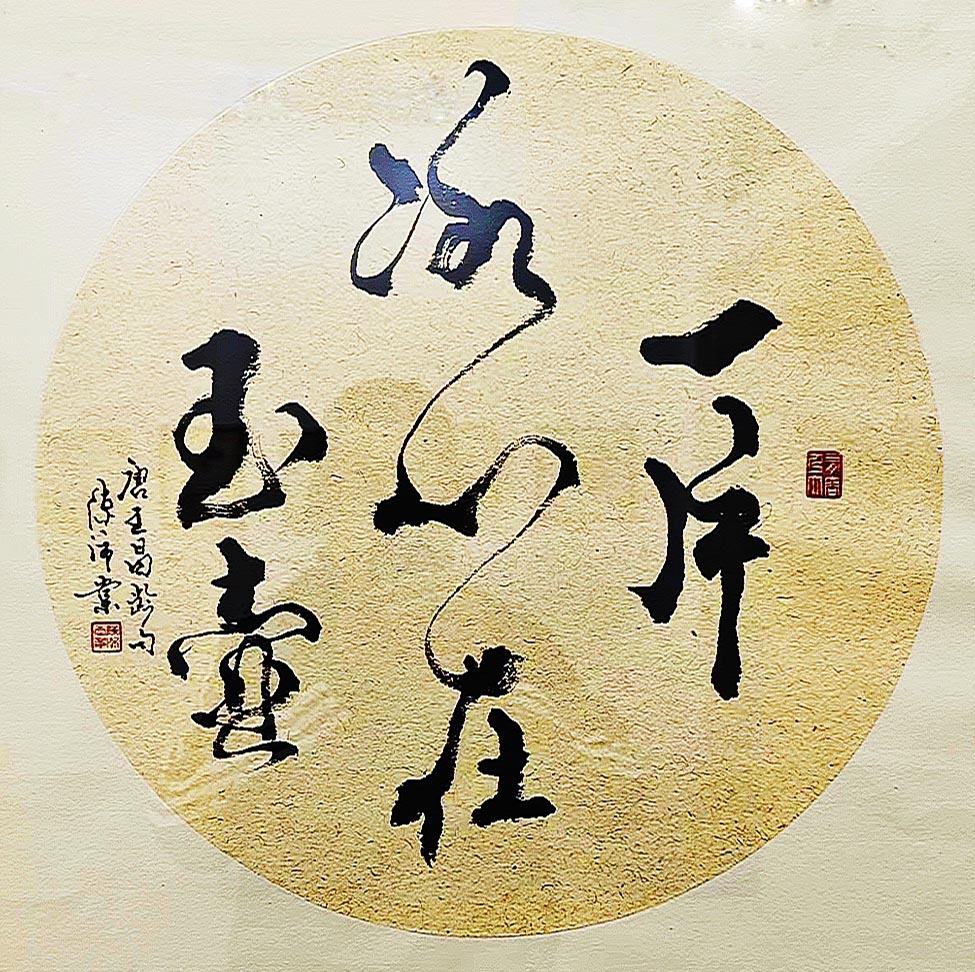 一片
冰心在
玉壶
唐王昌龄句
陈沛